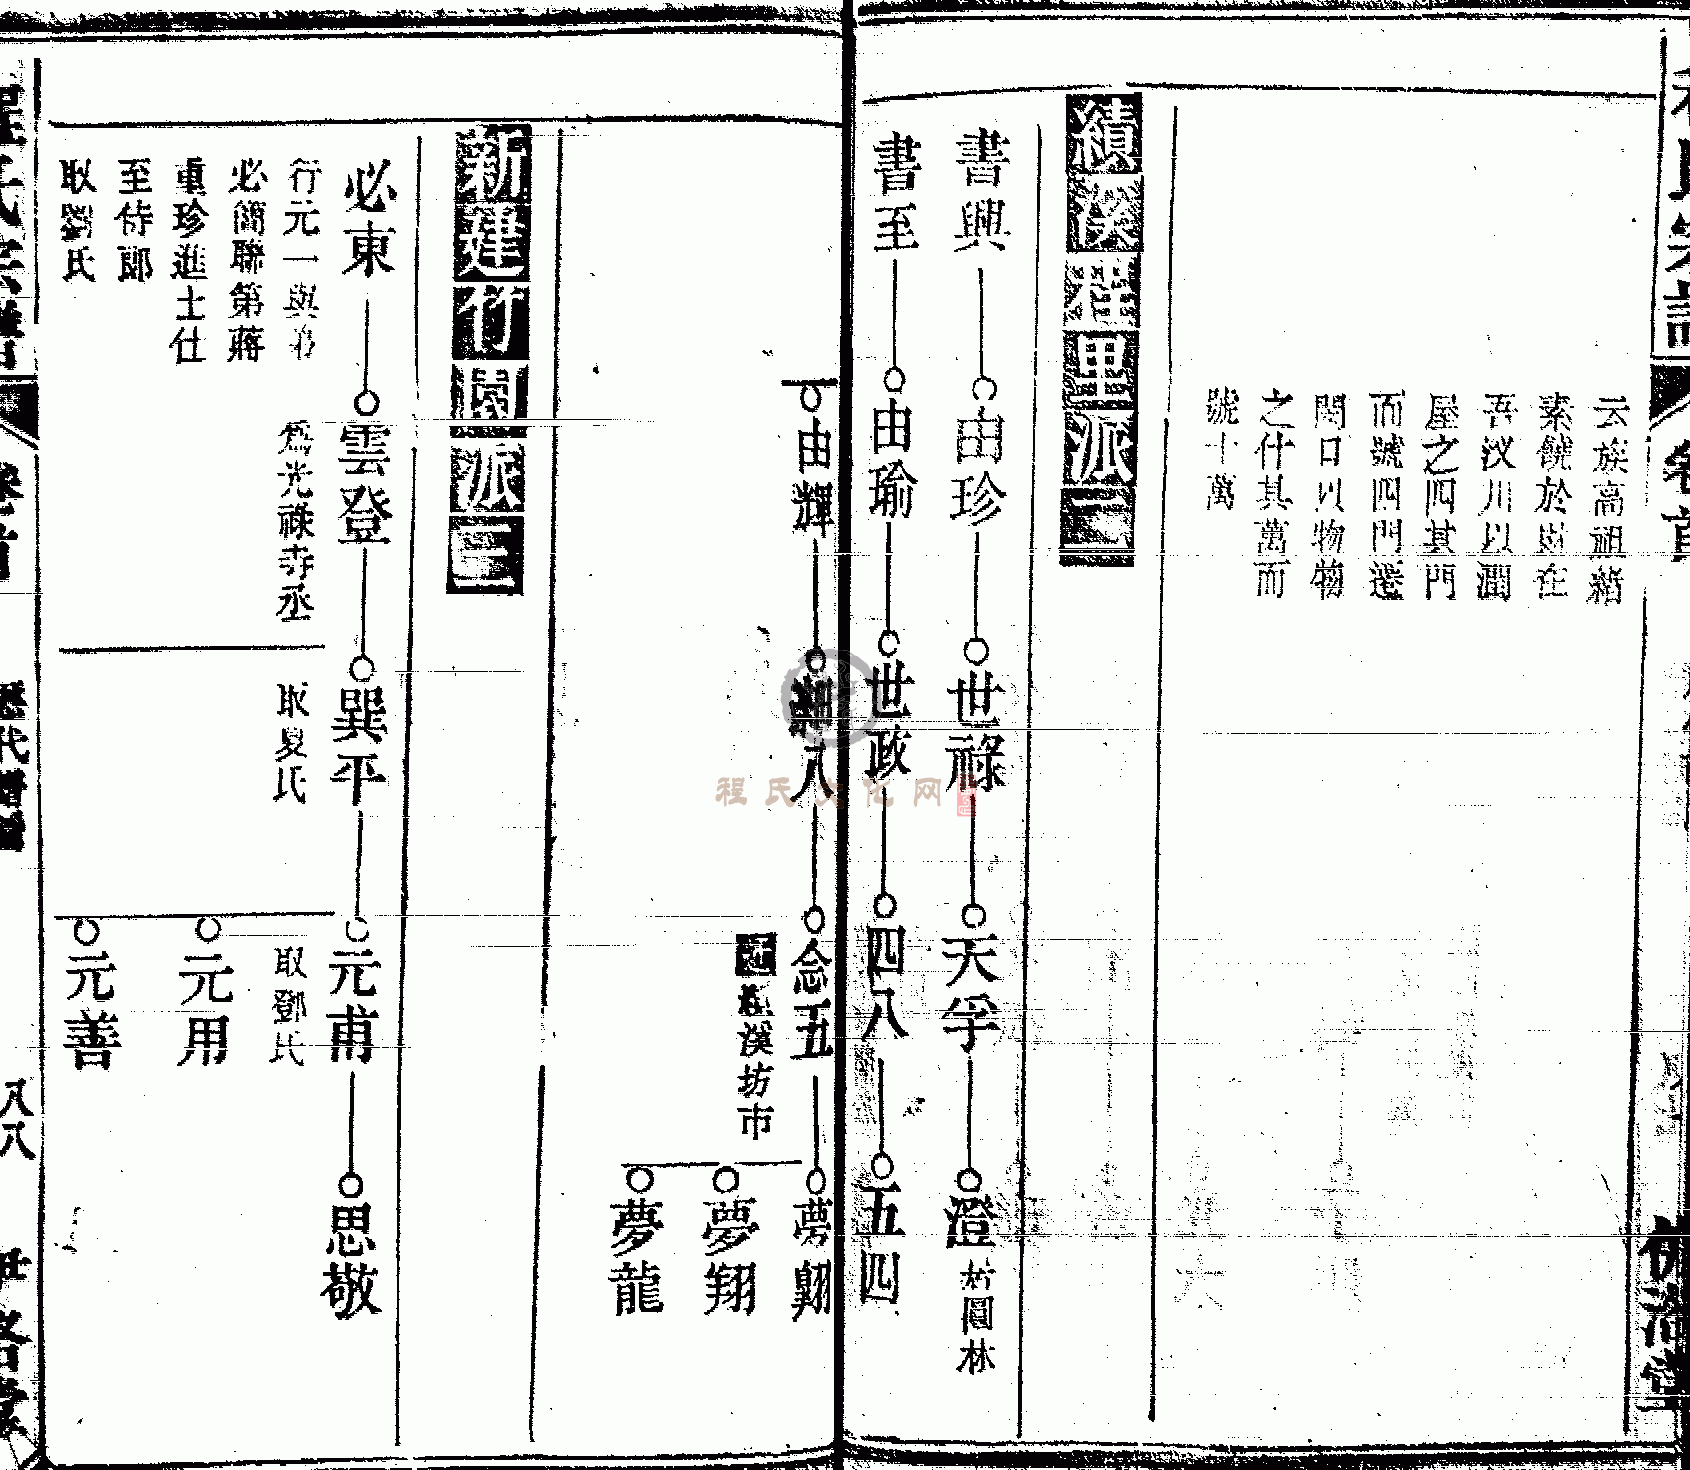 程氏宗譜
卷首
云族高祖緒
素饒於財在
吾汊川以潤
屋之四其門
而號四門選
閑口以物物
之什其萬而
號十萬
績溪仁里派二
書興
由珍
世祿
天孚
澄
竹園林
書至
由瑜
世政
四八
五四
由輝
八
念五
夢翱
夢翔
夢龍
遷
溪坊市
新建竹園派三
必東
行元一與弟
必簡聯第蔣
重珍進士仕
至侍郎
取劉氏
雲登
為光祿寺丞
巽平
取夏氏
元甫
取鄧氏
思敬
元用
元善
程氏宗譜
卷首
歷代
八八
程氏文化网